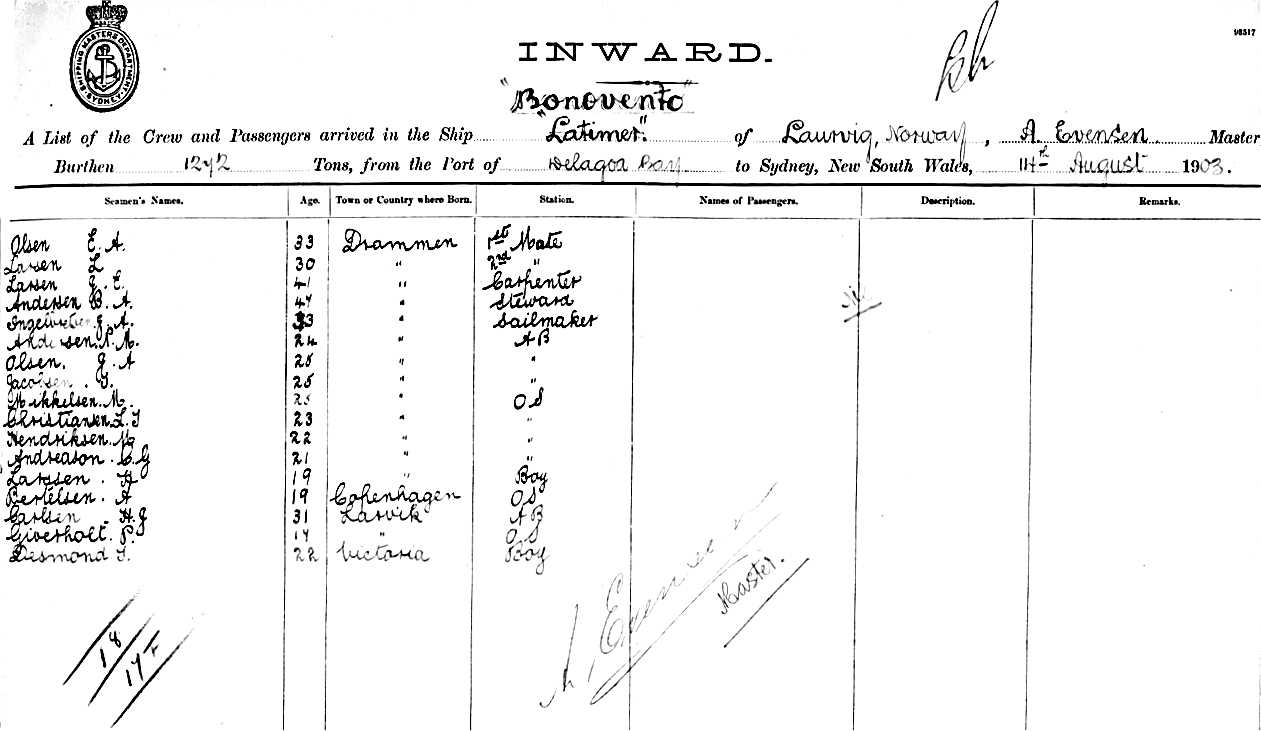 SHIPPING MASTERS DEPARTMENT
SYDNEY
98517
INWARD.
"Bonovento"
A List of the Crew and Passengers arrived in the Ship "Latimer". of Laurvig, Norway, A. Evensen Master
Burthen 1272 Tons, from the Port of Delagoa Bay to Sydney, New South Wales, 14th August 1903.
Seamen's Names. Age. Town or Country where Born. Station. Names of Passengers. Description. Remarks.
Olsen E. A. 33 Drammen 1st Mate
Larsen L 30 " 2nd "
Larsen J. E. 41 " Carpenter
Andersen B. A. 47 " Steward
J. A. 33 " Sailmaker
Andersen. N. M. 24 " AB
Olsen. J. A 25 " "
Jacobsen. T. 25 " "
Mikkelsen. M. 25 " OS
Christiansen L. T 23 " "
Hendriksen. M 22 " "
Andreason. C. G 21 " "
Larssen. H 19 " Boy
Bertelsen. A 19 Copenhagen OS
Carlsen. H. J 31 Larvik AB
Giverholt. P. 17 " OS
Desmond T. 22 Victoria Boy
A. Evensen
Master.
18
17